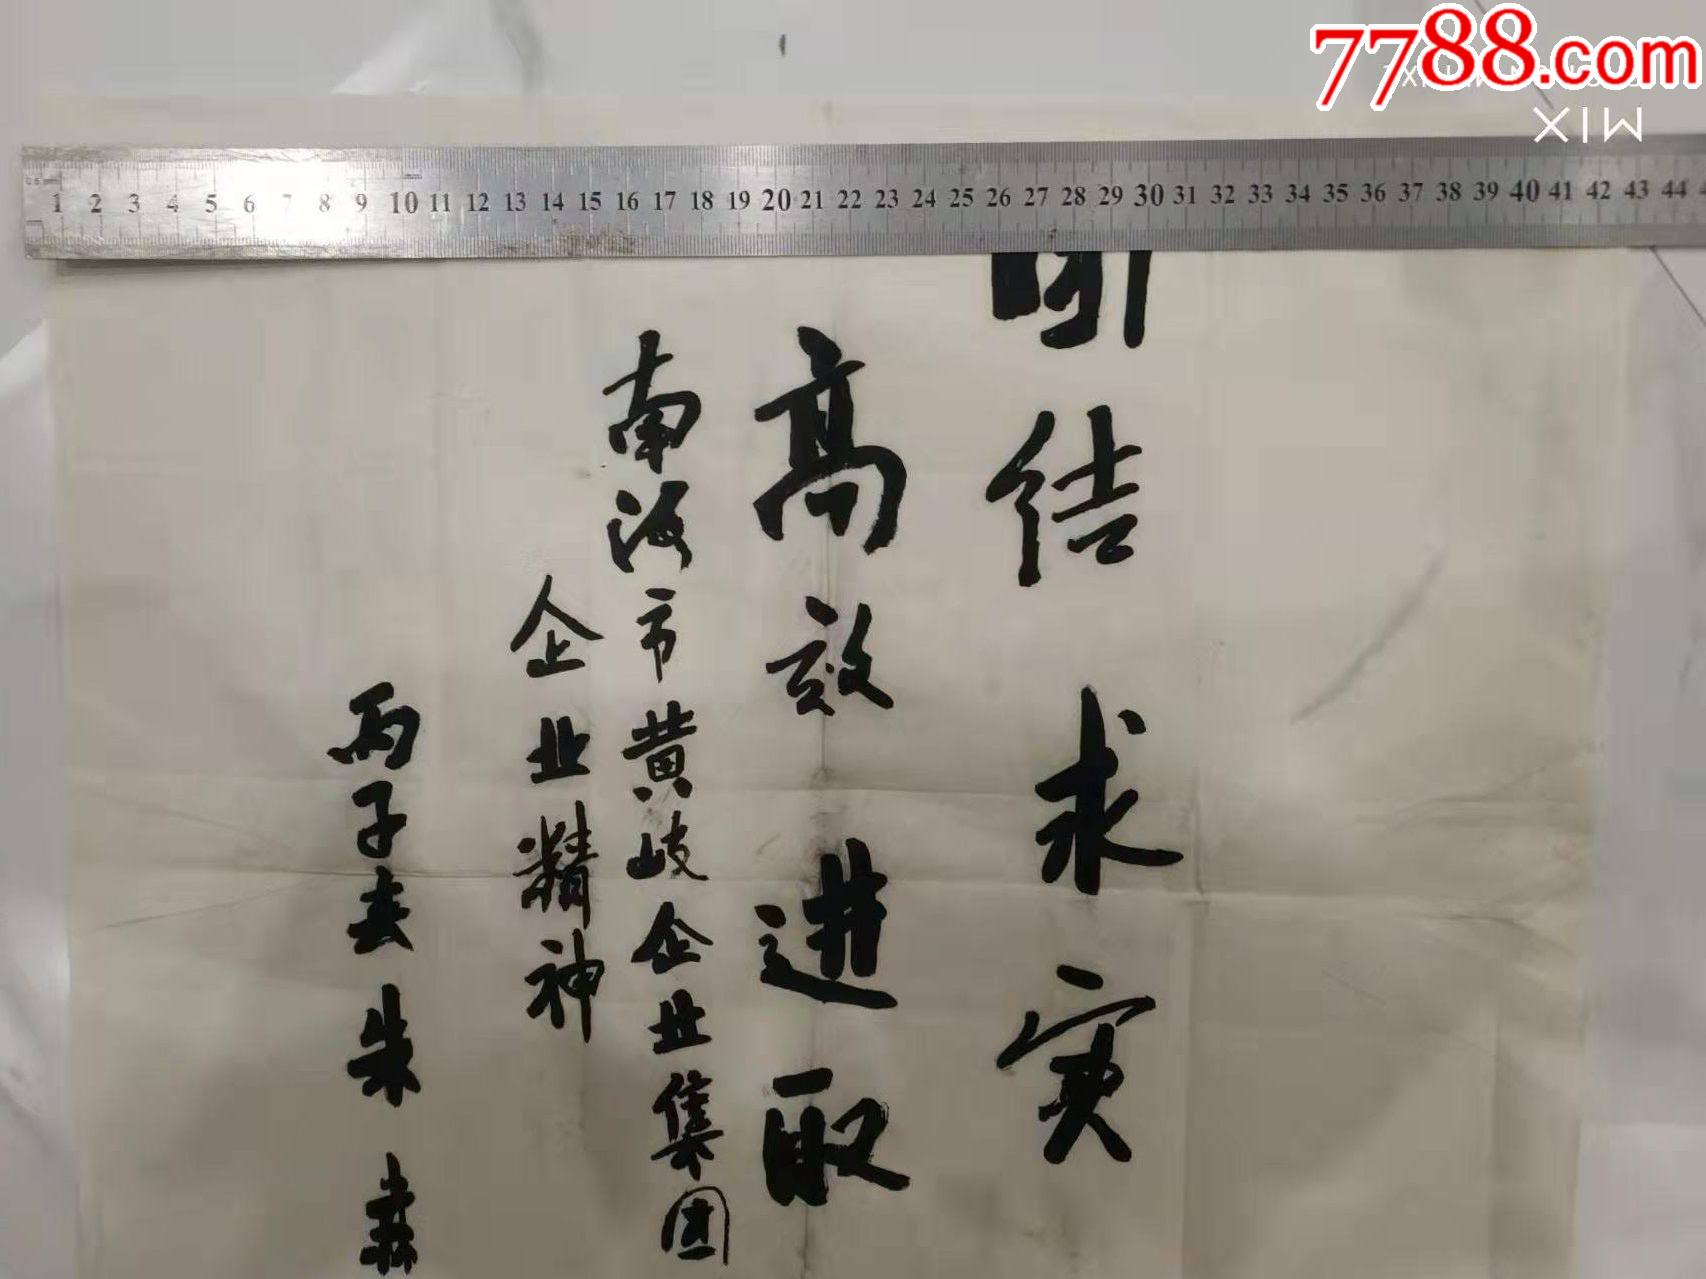 7788.com
MIX
1 2 3 4 5 6 7 8 9 10 11 12 13 14 15 16 17 18 19 20 21 22 23 24 25 26 27 28 29 30 31 32 33 34 35 36 37 38 39 40 41 42 43 44
结求实
高效进取
南海市黄岐企业集团
企业精神
丙子 朱